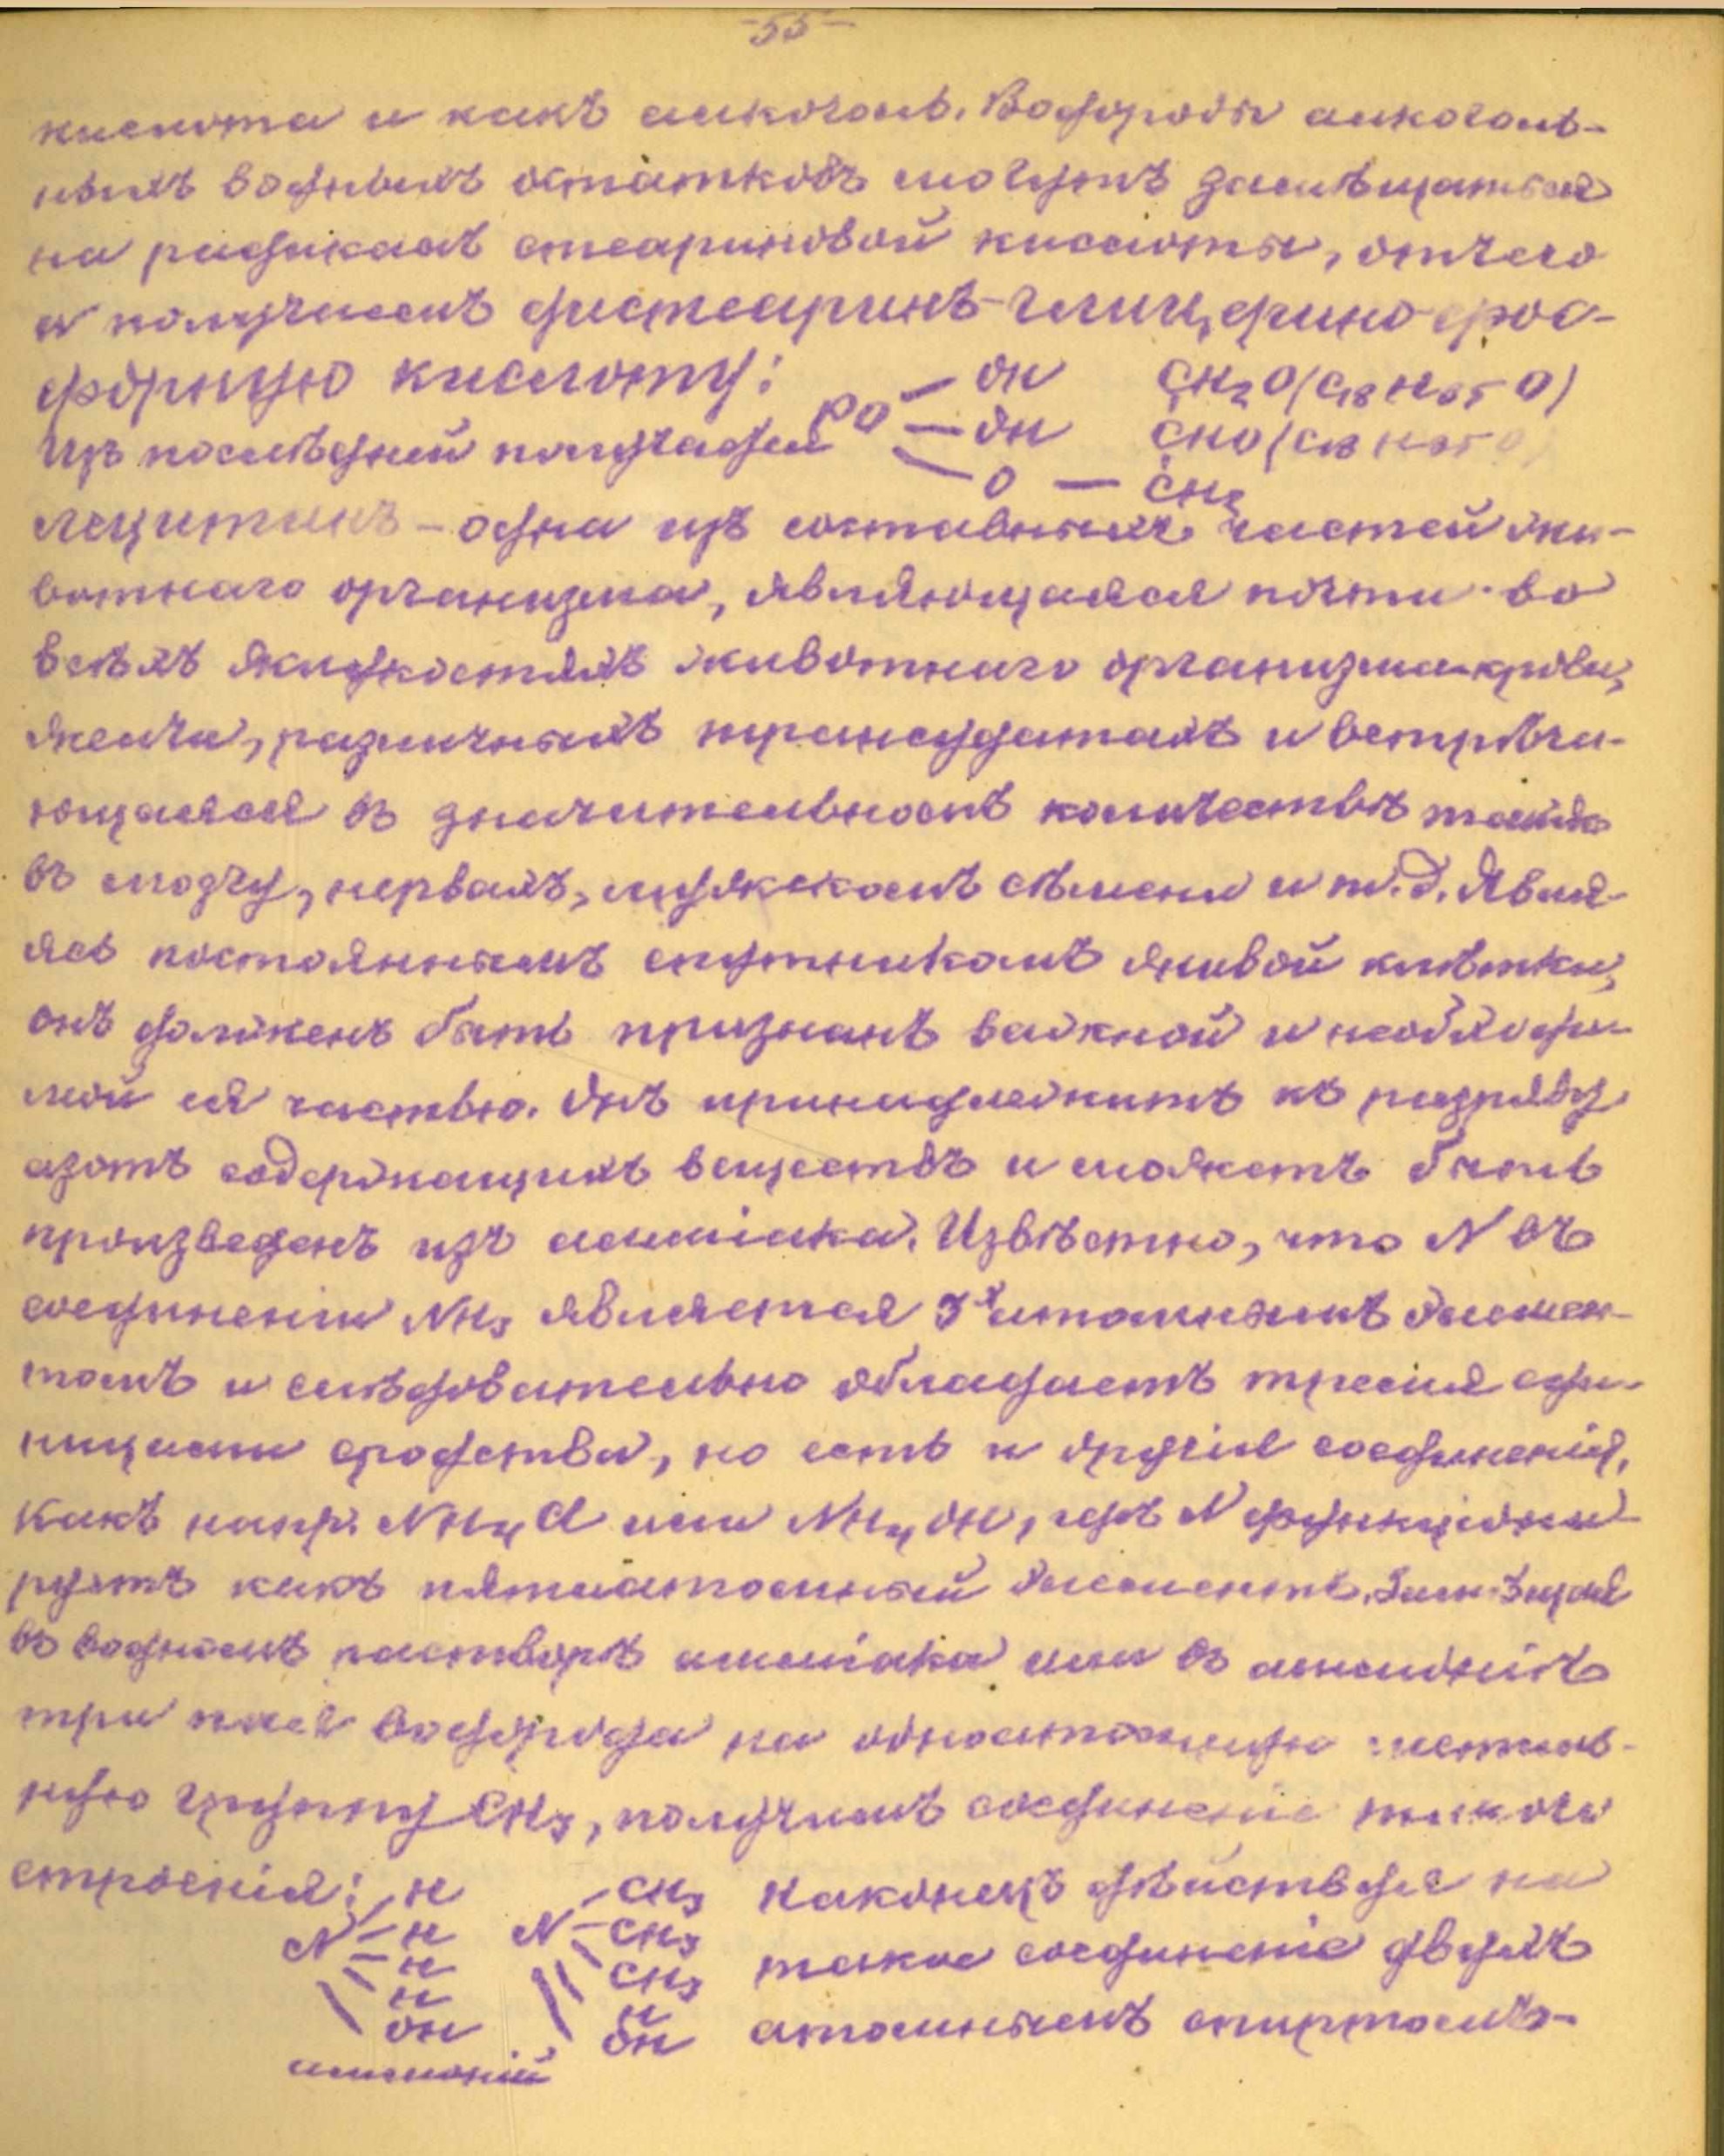 -55-
кислота и какъ алкоголь. Водороды алкоголь-
ныхъ водныхъ остатковъ могутъ замѣщаться
на радикалъ стеариновой кислоты, отчего
и получаемъ дистеаринъ-глицерино-фос-
форную кислоту:
PO OH CH2O(C18H35O)
OH CHO(C18H35O)
O — CH2
Изъ послѣдней получаем
лецитинъ - одна изъ составныхъ частей жи-
вотнаго организма, являющаяся почти во
всѣхъ жидкостяхъ животнаго организма-крови,
желчи, различныхъ трансудатахъ и встрѣча-
ющаяся въ значительномъ количествѣ также
въ мозгу, нервахъ, мужскомъ сѣмени и т.д. Явля-
ясь постояннымъ спутникомъ живой клѣтки,
онъ долженъ быть признанъ важной и необходи-
мой ея частью. Онъ принадлежитъ къ разряду
азотъ содержащихъ веществъ и можетъ быть
произведенъ изъ амміака. Извѣстно, что N въ
соединеніи NH3 является 3х атомнымъ элемен-
томъ и слѣдовательно обладаетъ тремя еди-
ницами сродства, но есть и другія соединенія,
какъ напр. NH4Cl или NH4OH, гдѣ N функціони-
руетъ какъ пятиатомный элементъ. Замѣщая
въ водномъ растворѣ амміака или въ аммоніѣ
три пая водорода на одноатомную метиль-
ную группу CH3, получимъ соединеніе такого
строенія:
N H H H H OH
аммоній
N CH3 CH3 CH3 H OH
Наконецъ дѣйствуя на
такое соединеніе двухъ
атомнымъ спиртомъ-